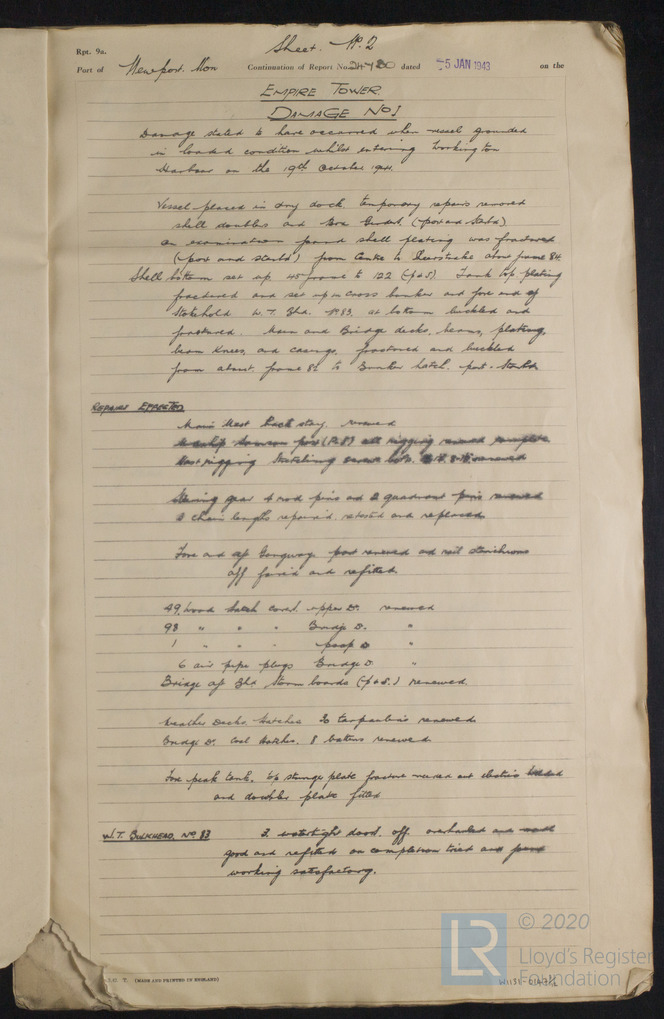 Sheet. No. 2
Rpt. 9a.
Port of Newport. Mon Continuation of Report No. 24780 dated 5 JAN 1943 on the
EMPIRE TOWER.
DAMAGE No 1
Damage stated to have occurred when vessel grounded
in loaded condition whilst entering Workington
Harbour on the 19th October 1941.
Vessel placed in dry dock, temporary repairs removed
shell doublers and Box Girders. (port and Starbd)
on examination found shell plating was fractured
(port and starbd) from centre to sheerstrake about frame 84.
Shell bottom set up 45 frame to 122 (p&S). Tank top plating
fractured and set up in cross bunker and fore end of
Stokehold W.T. Bhd. No 83. at bottom buckled and
fractured. Main and Bridge decks, beams, plating,
beam knees, and casings, fractured and buckled
from about frame 82 to Bunker hatch. port. Starbd.
REPAIRS EFFECTED
Main Mast back stay, renewed
rigging renewed complete
rigging stretching screws renewed
Steering gear 4 rod pins and 2 quadrant pins renewed
2 chain lengths repaired retested and replaced.
Fore and aft Gangway. port renewed and rail stanchions
off faired and refitted.
49. Wood hatch covers. upper D. renewed
98 " " " Bridge D. "
1 " " " poop D "
6 air pipe plugs Bridge D. "
Bridge aft Bhd, Storm boards (p&s.) renewed.
Weather Decks. Hatches 20 tarpaulins renewed.
Bridge D. Coal Hatches. 8 battens renewed.
Fore peak tank, top stringer plate fracture veed out electric welded
and doubler plate fitted
W.T. BULKHEAD. No 83 2. watertight doors. off. overhauled and made
good and refitted on completion tried and found
working satisfactory.
T. (MADE AND PRINTED IN ENGLAND)
LR © 2020
Lloyd's Register
Foundation